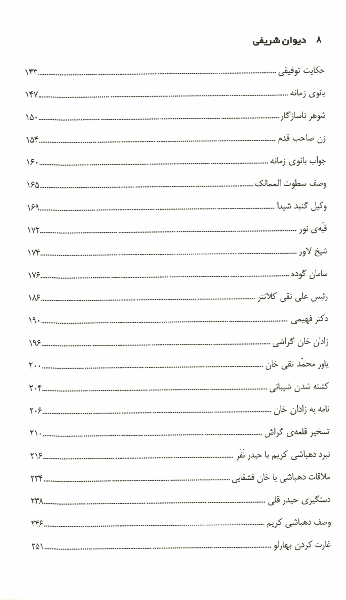 ۸ دیوان شریفی
حکایت توفیقی ۱۳۳
بانوی زمانه ۱۴۷
شوهر ناسازگار ۱۵۰
زن صاحب قدم ۱۵۴
جواب بانوی زمانه ۱۶۰
وصف سطوت الممالک ۱۶۵
وکیل گنبد شیدا ۱۶۹
قبّه‌ی نور ۱۷۲
شیخ لاور ۱۷۴
سامان گوده ۱۷۶
رئیس علی نقی کلانتر ۱۸۶
دکتر فهیمی ۱۹۰
زادان خان گراشی ۱۹۶
یاور محمّد نقی خان ۲۰۰
کشته شدن شیبانی ۲۰۴
نامه به زادان خان ۲۰۶
تسخیر قلعه‌ی گراش ۲۱۰
نبرد دهباشی کریم با حیدر نَفَر ۲۱۶
ملاقات دهباشی با خان قشقایی ۲۳۴
دستگیری حیدر قلی ۲۳۸
وصف دهباشی کریم ۲۴۶
غارت کردن بهارلو ۲۵۱